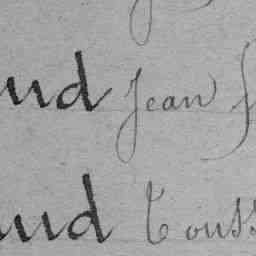 ud Jean
aud Touss